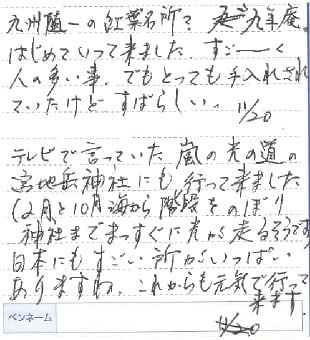 九州随一の紅葉名所？ 九年庵。
はじめていって来ました。すごーーく
人の多い事。でもとっても手入れされ
ていたけど すばらしい。 11/20
テレビで言っていた 嵐の光の道の
宮地岳神社にも 行って来ました
(2月と10月 海から 階段をのぼり
神社まで まっすぐに光が走るそうです
日本にもすごい所がいっぱい
ありますね。これからも元気で行って
来ます。
11/20
ペンネーム